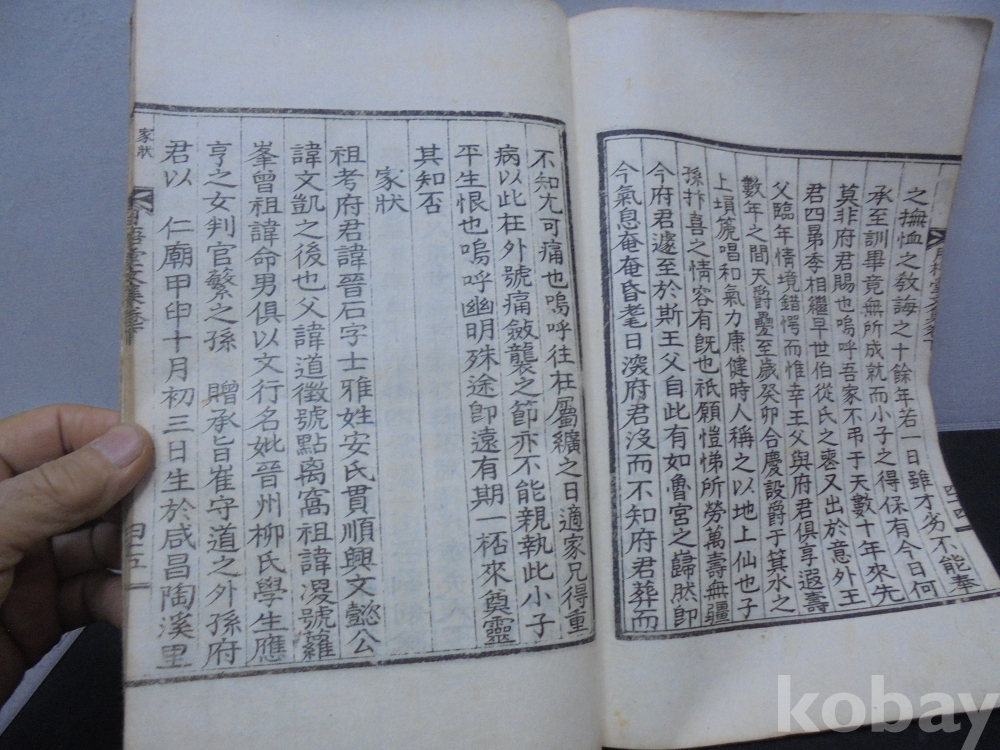 之撫恤之敎誨之十餘年若一日雖才劣不能奉
承至訓畢竟無所成就而小子之得保有今日何
莫非府君賜也嗚呼吾家不弔于天數十年來先
君四昴季相繼早世伯從氏之喪又出於意外王
父臨年情境錯愕而惟幸王父與府君俱享遐壽
數年之間天爵疊至於歲癸卯合慶設爵于箕水之
上塤篪唱和氣力康健時人稱之以地上仙也子
孫抃喜之情容有旣也祇願愷悌所勞萬壽無疆
今府君遽至於斯王父自此有如魯宮之歸然卽
今氣息奄奄昏耄日深府君沒而不知府君葬而
四十四
不知尤可痛也嗚呼往在屬纊之日適家兄得重
病以此在外號痛斂襲之節亦不能親執此小子
平生恨也嗚呼幽明殊途卽遠有期一桮來奠靈
其知否
家狀
祖考府君諱晉石字士雅姓安氏貫順興文懿公
諱文凱之後也父諱道徵號點离窩祖諱溭號蘿
峯曾祖諱命男俱以文行名妣晉州柳氏學生應
亨之女判官繁之孫 贈承旨崔守道之外孫府
君以 仁廟甲申十月初三日生於咸昌陶溪里
家狀
四十五
kobay